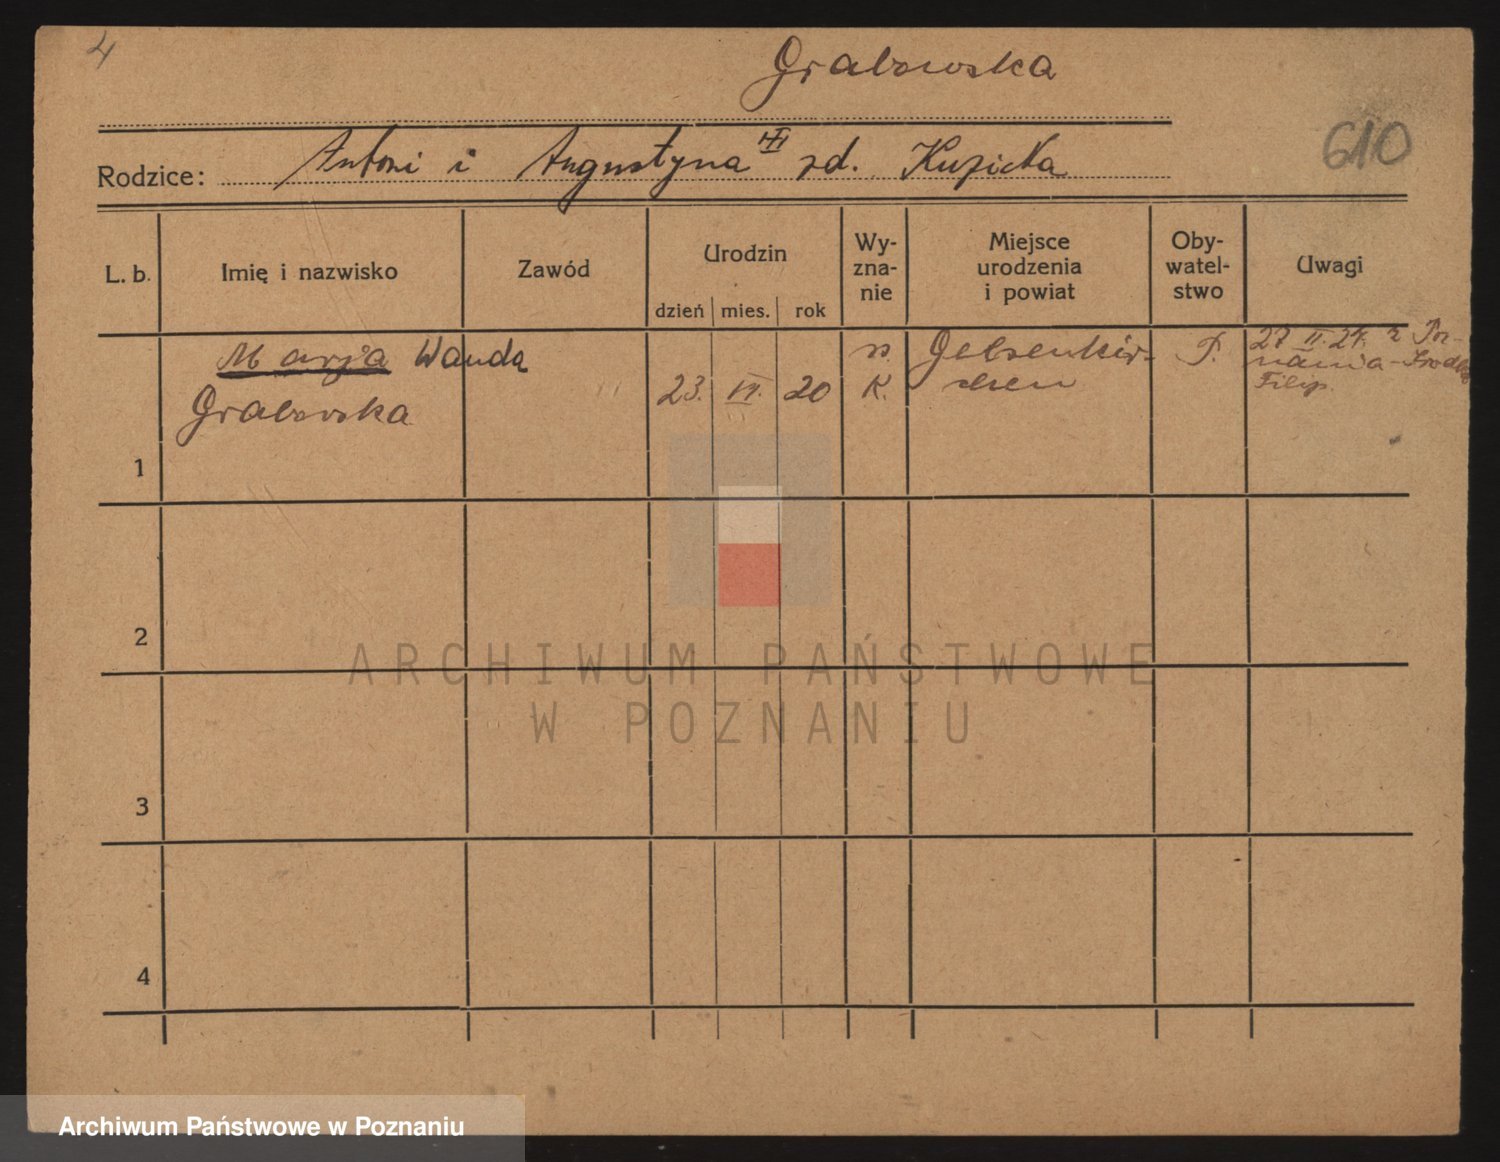 4
Grabowska
610
Rodzice: Antoni i Augustyna zd. Kuzicka
L. b.
Imię i nazwisko
Zawód
Urodzin
dzień mies. rok
Wy-
zna-
nie
Miejsce
urodzenia
i powiat
Oby-
watel-
stwo
Uwagi
1
Marja Wanda
Grabowska
23. VI. 20
K.
Gelsenkir-
chen
P.
27 II. 24. z Poz-
nania-
Filip.
2
3
4
ARCHIWUM PAŃSTWOWE
W POZNANIU
Archiwum Państwowe w Poznaniu